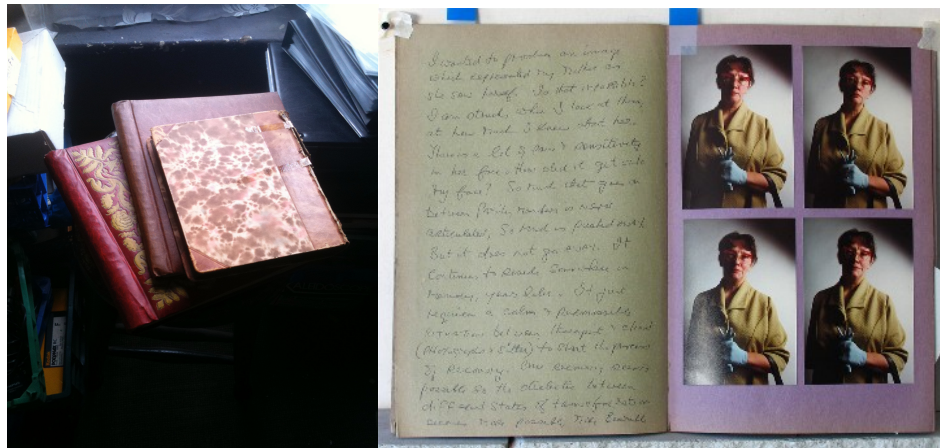 I wanted to produce an image
which represented my Mother as
she saw herself. Is that impossible?
I am struck when I look at them,
at how much I know about her.
There is a lot of pain & sensitivity
in her face. How did it get into
my face? So much that goes on
between family members is never
articulated, so much is pushed away.
But it does not go away. It
continues to reside somewhere in
memory, years later. It just
requires a calm &
situation between therapist & client
(Photographer & Sitter) to start the process
of recovery. Once recovery seems
possible so the dialectic between
different states of transformation
seems more possible,